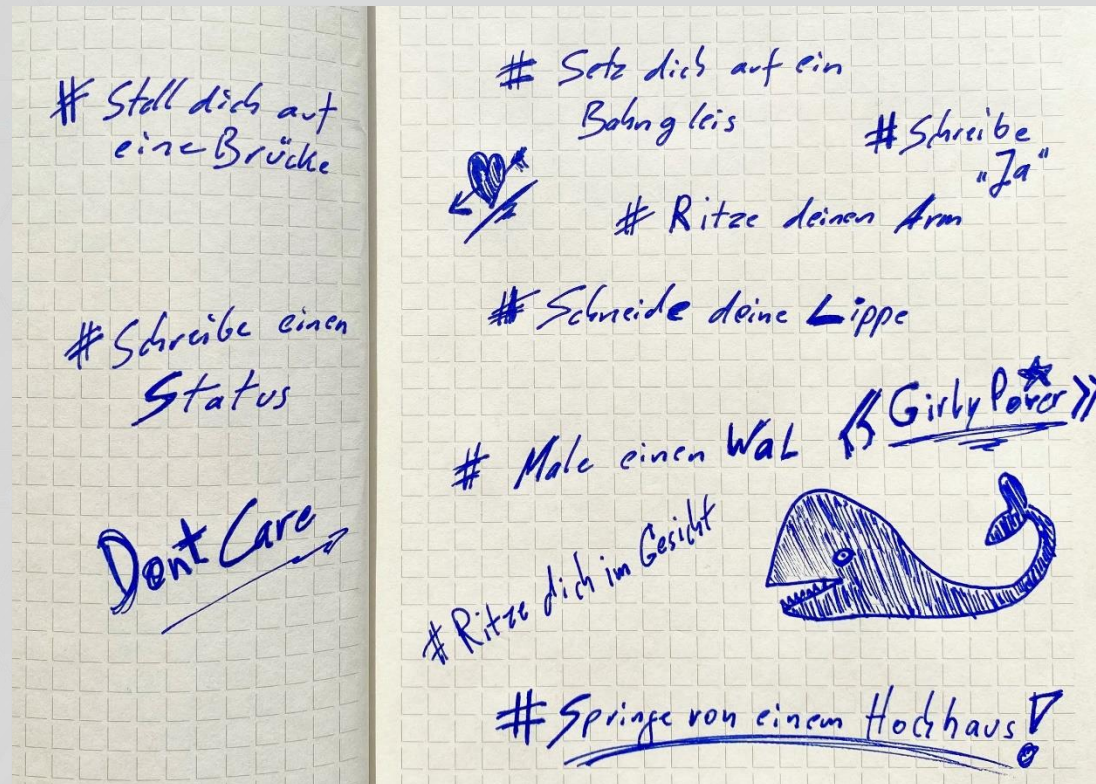 # Stell dich auf
eine Brücke
# Schreibe einen
Status
Dont Care
# Setz dich auf ein
Bahngleis
# Schreibe
"Ja"
# Ritze deinen Arm
# Schneide deine Lippe
« Girly Power »
# Male einen WaL
# Ritze dich im Gesicht
# Springe von einem Hochhaus!